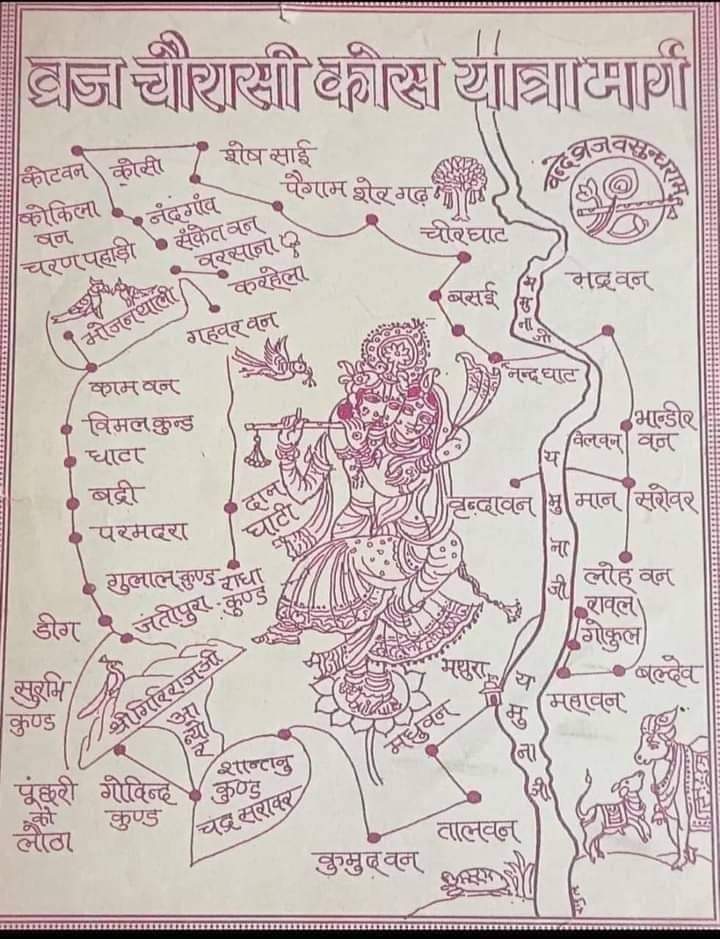 ब्रज चौरासी कोस यात्रा मार्ग
वन्दे ब्रजवसुन्धराम
कोटवन
कोसी
शेष साई
पैगाम
शेरगढ़
चीरघाट
कोकिला
वन
नंदगाँव
संकेत वन
चरण पहाड़ी
वरसाना
करहेला
भोजन थाली
गहवर वन
बसई
यमुना जी
भद्र वन
नन्द घाट
काम वन
विमल कुन्ड
घाटा
बद्री
परमदरा
गुलाल कुण्ड
राधा
कुण्ड
दान
घाटी
भान्डीर
वन
वेलवन
वृन्दावन
मान सरोवर
यमुना जी
लोह वन
रावल
गोकुल
बल्देव
महावन
डीग
जतीपुरा
सुरभि
कुण्ड
श्री गिरिराज जी
आन्यौर
मथुरा
मधुवन
यमुना जी
पूंछरी
को
लौठा
गोविन्द
कुण्ड
शान्तनु
कुण्ड
चन्द्र सरोवर
तालवन
कुमुद वन